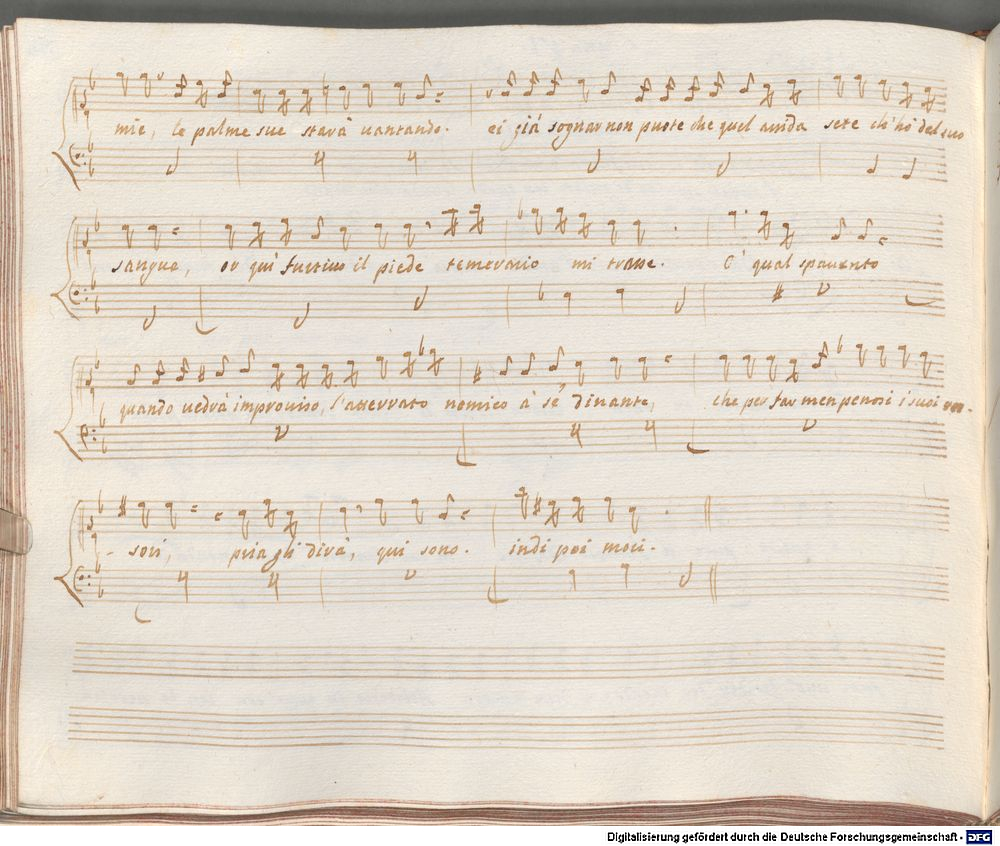 mie, le palme sue starà uantando. ei già sognar non puote che quel auida sete ch'hò del suo
sangue, or qui furtiuo il piede temerario mi trasse. O' qual spauento
quando uedrà improuiso, l'atterrato nemico à sè dinante, che per far men penosi i suoi
- sori, pria gli dirà, qui sono. indi poi mori.
Digitalisierung gefördert durch die Deutsche Forschungsgemeinschaft - DFG